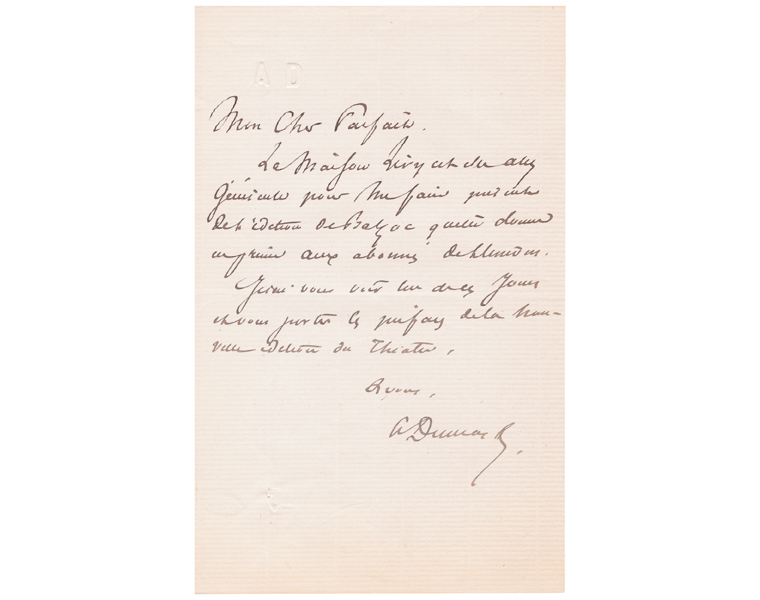 A D
Mon Cher Parfait.
La Maison Lévy est elle assez
Généreuse pour me faire présent
de l'édition de Balzac qu'elle donne
en prime aux abonnés de
J'irai vous voir un de ces jours
et vous porter les préfaces de la Nou-
velle édition du Théâtre,
A vous,
A Dumas f